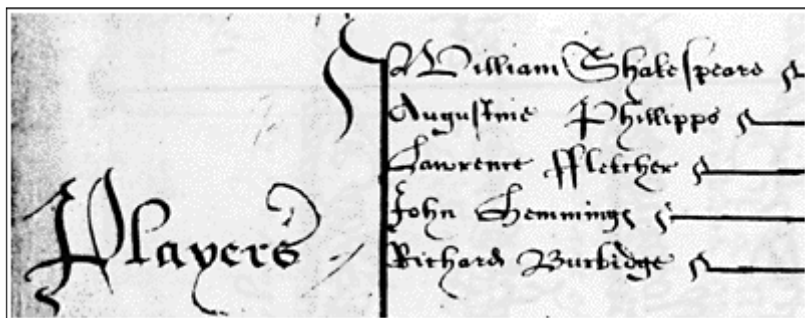 Players
William Shakespeare
Augustine Phillipps
Lawrence Ffletcher
John Hemminges
Richard Burbidge